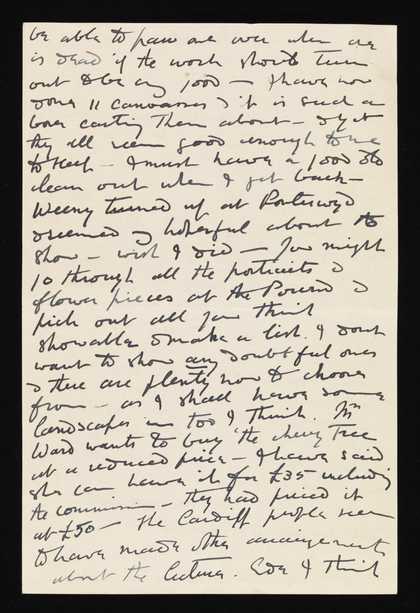 be able to pass one over when one
is dead if the work should turn
out to be any good – I have now
done 11 canvasses & it is such a
bore carting them about – & yet
they all seem good enough to me
to keep – I must have a good
clean out when I get back –
Weeny turned up at Portscwyd
& seemed hopeful about the
show – wish I did – You might
go through all the portraits &
flower pieces at the Pound &
pick out all you think
showable & make a list. I don't
want to show any doubtful ones
& there are plenty now to choose
from – as I shall have some
landscapes in too I think. Mrs
Ward wants to buy "the cherry Tree
at a reduced price – I have said
she can have it for £35 including
the commission – they had priced it
at £50 – the Cardiff people seem
to have made other arrangements
about the lecture. Eda I think